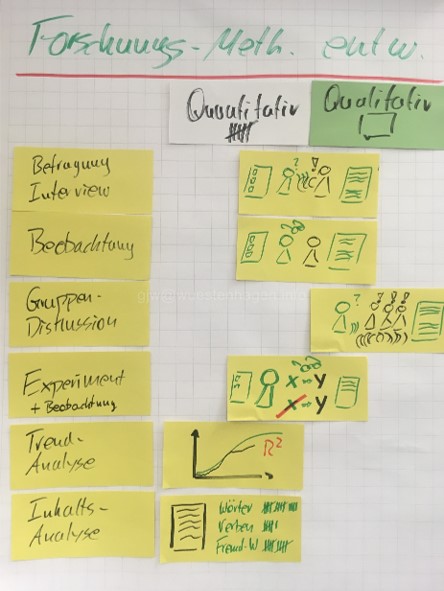 Forschungs-Meth. entw.
Quantitativ
Qualitativ
Befragung
Interview
? !
Beobachtung
Gruppen-
Diskussion
? ! ! !
Experiment
+ Beobachtung
X → Y
X → Y
Trend-
Analyse
R²
Inhalts-
Analyse
Wörter
Verben
Fremd-W